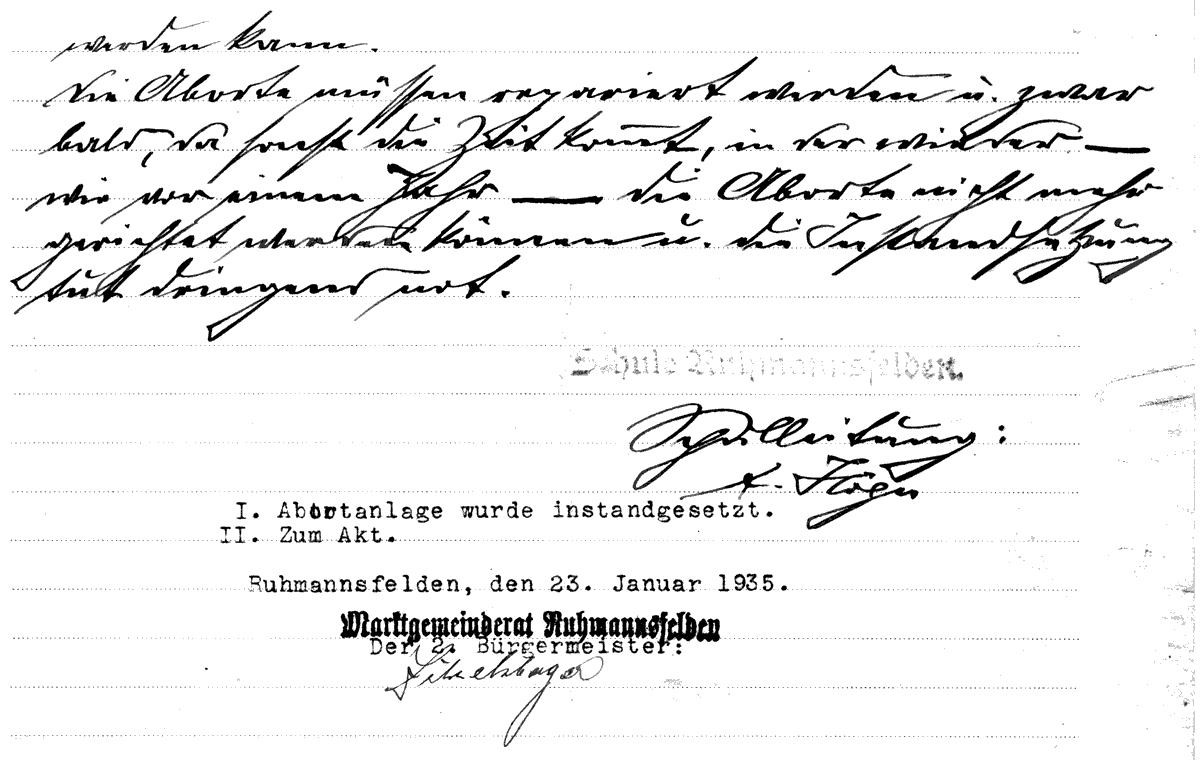 werden kann.
Die Aborte müssen repariert werden u. zwar
bald, da sonst die Zeit kommt, in der wieder —
wie vor einem Jahr — die Aborte nicht mehr
gerichtet werden können u. die Instandsetzung
tut dringend not.
Schule Ruhmannsfelden.
Schulleitung:
A. Högn
I. Abortanlage wurde instandgesetzt.
II. Zum Akt.
Ruhmannsfelden, den 23. Januar 1935.
Marktgemeinderat Ruhmannsfelden
Der 2. Bürgermeister: